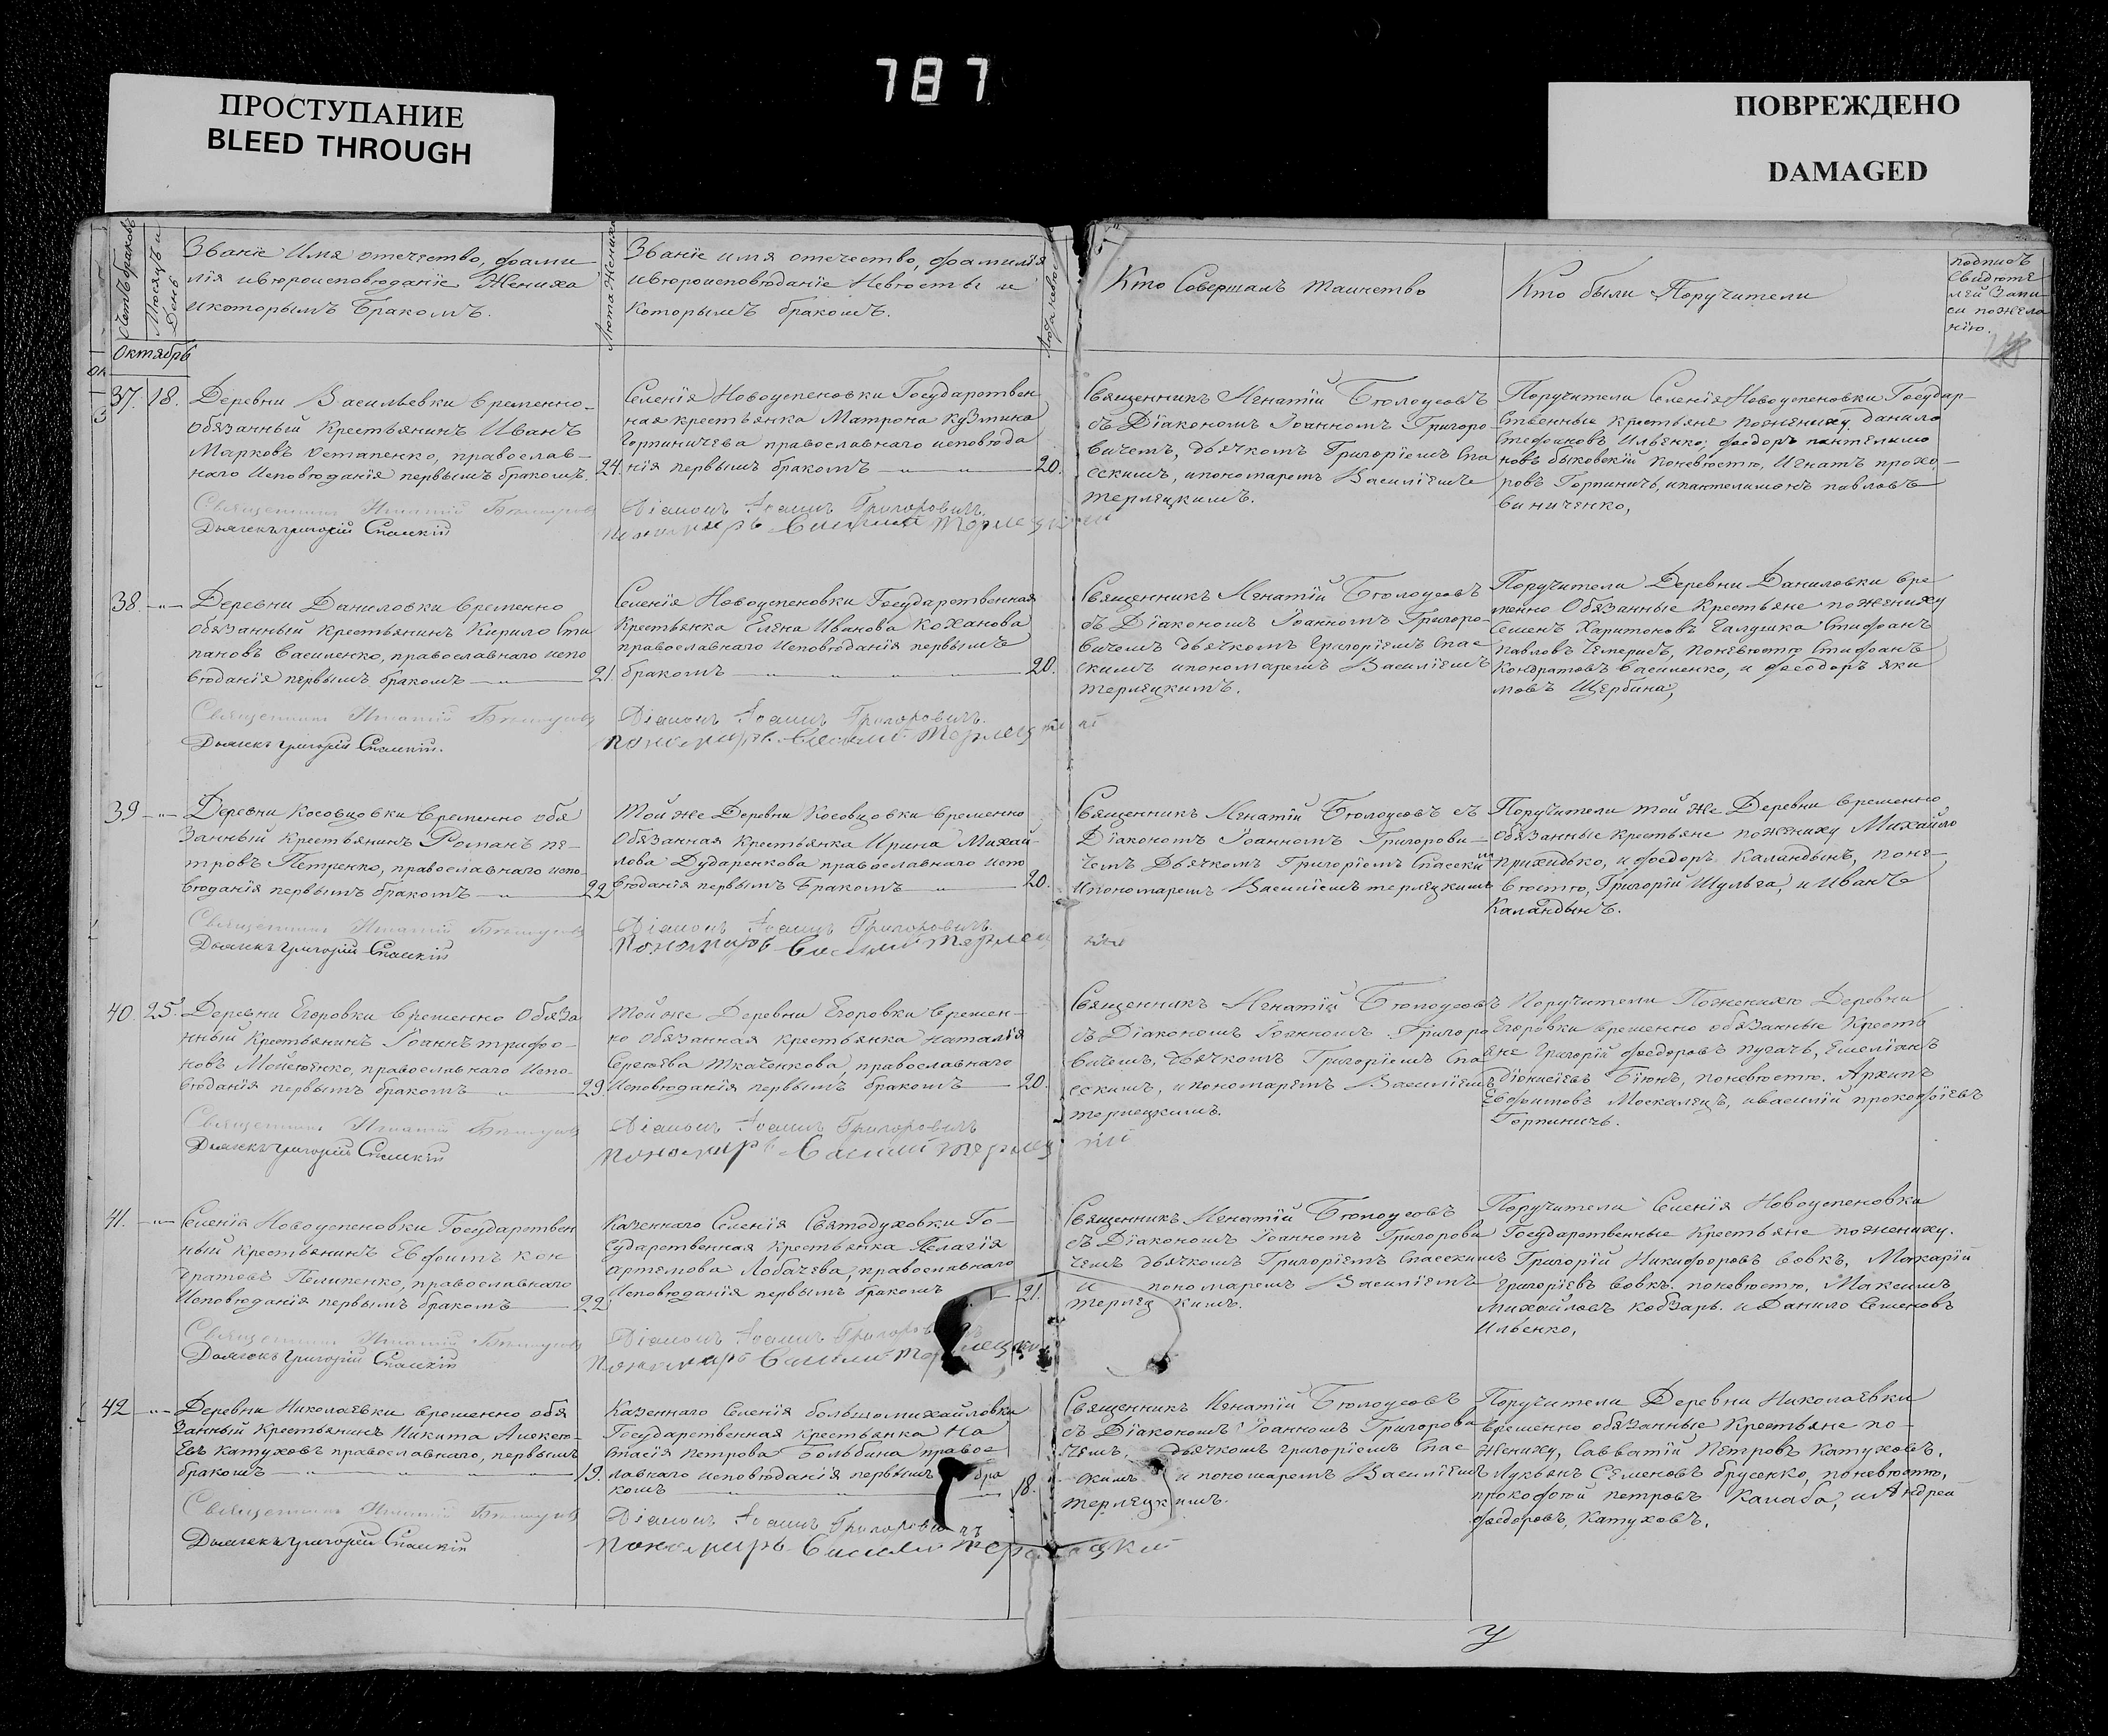 787
ПРОСТУПАНИЕ
BLEED THROUGH
ПОВРЕЖДЕНО
DAMAGED
Счетъ браковъ
Мѣсяцъ и
День
Званіе Имя отечество, фами
лія ивѣроисповѣданіе Жениха
икоторымъ Бракомъ.
Лѣта Жениха
Званіе имя отечество, фамилія
ивѣроисповѣданіе Невѣсты и
Которымъ бракомъ.
Лѣта невѣс
Кто Совершалъ таинство
Кто были Поручители
подписъ
Свидѣте
лей Запи
си пожела
нію.
Октябрь
37. 18. Деревни Васильевки временно-
обязанный Крестьянинъ Иванъ
Марковъ Остапенко, православ-
наго Исповѣданія первымъ бракомъ. 24.
Священникъ Игнатій Бѣлоусовъ
Дьячекъ Григорій Спасскій
Селенія Новоуспеновки Государствен
ная крестьянка Матрона Кузмина
Горпиничева православнаго исповѣда
нія первымъ бракомъ 20.
Діаконъ Іоаннъ Григоровичъ.
Пономарь Василій Терлецкій
Священникъ Игнатій Бѣлоусовъ
съ Діакономъ Іоанномъ Григоро
вичемъ, дьячкомъ Григоріемъ Спа
сскимъ, ипономаремъ Василіемъ
терлецкимъ.
Поручители Селенія Новоуспеновки Государ-
ственные крестьяне пожениху Данило
Стефановъ Ильенко, феодоръ пантелимо
новъ быковскій поневѣсте, Игнатъ прохо-
ровъ Горпиничь, ипантелимонъ павловъ
виниченко,
38. Деревни Даниловки временно
обязанный крестьянинъ Кирило Сти
пановъ Василенко, православнаго испо
вѣданія первымъ бракомъ 21.
Священникъ Игнатій Бѣлоусовъ
Дьячекъ Григорій Спасскій.
Селенія Новоуспеновки Государственная
Крестьянка Елена Иванова Коханова
православнаго исповѣданія первымъ
бракомъ 20.
Діаконъ Іоаннъ Григоровичъ.
Пономарь Василій Терлецкій
Священникъ Игнатій Бѣлоусовъ
съ Діакономъ Іоанномъ Григоро-
вичемъ дьячкомъ Григоріемъ Спас
скимъ ипономаремъ Василіемъ
терлецкимъ.
Поручители Деревни Даниловки вре
менно Обязанные Крестьяне пожениху
Семенъ Харитоновъ Галушка Стифанъ
Павловъ Чемерисъ, поневѣсте Стифанъ
Кондратовъ Василенко, и феодоръ яки
мовъ Щербина,
39 Деревни Косовцовки временно обя
занный крестьянинъ Романъ пе-
тровъ Петренко, православнаго испо-
вѣданія первымъ бракомъ 22
Священникъ Игнатій Бѣлоусовъ
Дьячекъ Григорій Спасскій
Той же Деревни Косовцовки временно
обязанная крестьянка Ирина Михай-
лова Дударенкова православнаго испо
вѣданія первымъ Бракомъ 20.
Діаконъ Іоаннъ Григоровичъ.
Пономарь Василій Терлецкій
Священникъ Игнатій Бѣлоусовъ съ
Діакономъ Іоанномъ Григорови-
чемъ Дьячкомъ Григоріемъ Спасским
ипономаремъ Василіемъ терлецкимъ
Поручители той же Деревни временно
обязанные крестьяне пожениху Михайло
прихидько, и феодоръ Каландынъ, поне-
вѣсте, Григорій Шульга, и Иванъ
Каландынъ.
40. 25. Деревни Егоровки временно обяза
нный крестьянинъ Іоаннъ трифо-
новъ Мойсѣенко, православнаго испо-
вѣданія первымъ бракомъ 29.
Священникъ Игнатій Бѣлоусовъ
Дьячекъ Григорій Спасскій
той же Деревни Егоровки времен-
но обязанная крестьянка наталія
Сергѣева Ткаченкова, православнаго
исповѣданія первымъ бракомъ 20.
Діаконъ Іоаннъ Григоровичъ
Пономарь Василій Терлецкій
Священникъ Игнатій Бѣлоусовъ
съ Діакономъ Іоанномъ Григоро
вичемъ, дьячкомъ Григоріемъ Спа
сскимъ, ипономаремъ Василіемъ
терлецкимъ.
Поручители Пожениху Деревни
Егоровки временно обязанные Кресть
яне Григорій феодоровъ пугачь, Емеліянъ
діонисіевъ Біюнъ, поневѣсте. Архипъ
Евфимовъ Москалецъ, ивасилій прокофіевъ
Горпиничь.
41. Селенія Новоуспеновки Государствен
ный крестьянинъ Евфимъ Кон
дратовъ Пелипенко, православнаго
Исповѣданія первымъ бракомъ 22
Священникъ Игнатій Бѣлоусовъ
Дьячекъ Григорій Спасскій
Казеннаго Селенія Святодуховки Го-
сударственная крестьянка Пелагія
артемова Лобачева, православнаго
исповѣданія первымъ бракомъ 21.
Діаконъ Іоаннъ Григоровичъ
Пономарь Василій Терлецкій
Священникъ Игнатій Бѣлоусовъ
съ Діакономъ Іоанномъ Григорови
чемъ дьячкомъ Григоріемъ Спасскимъ
и пономаремъ Василіемъ
терлецкимъ.
Поручители Селенія Новоуспеновка
Государственные Крестьяне пожениху.
Григорій Никифоровъ вовкъ, Макарій
Григоріевъ вовкъ. поневѣсте, Максимъ
Михайловъ кобзарь. и Данило Семеновъ
Ильенко,
42 Деревни Николаевки временно обя
занный Крестьянинъ Никита Алексѣ-
евъ Катуховъ православнаго, первымъ
бракомъ 19.
Священникъ Игнатій Бѣлоусовъ
Дьячекъ Григорій Спасскій
Казеннаго Селенія большомихайловки
Государственная крестьянка На
стасія петрова Гольбина правос
лавнаго исповѣданія первымъ бра
комъ 18.
Діаконъ Іоаннъ Григоровичъ
Пономарь Василій Терлецкій
Священникъ Игнатій Бѣлоусовъ
съ Діакономъ Іоанномъ Григорови
чемъ. дьячкомъ григоріемъ Спас
скимъ и пономаремъ Василіемъ
терлецкимъ.
Поручители Деревни Николаевки
временно обязанные Крестьяне по-
жениху, Савватій Петровъ Катуховъ,
Лукьянъ Семеновъ брусенко, поневѣсте,
прокофій петровъ Калаба, и Андрей
феодоровъ, Катуховъ.